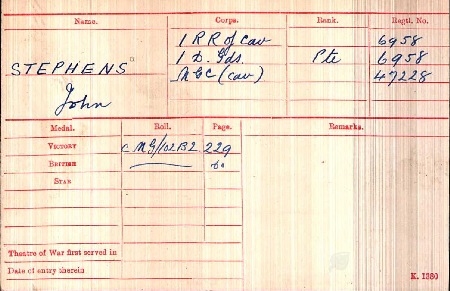 Name. Corps. Rank. Regtl. No.
1 R R of Cav 6958
STEPHENS 1 D. Gds. Pte 6958
M G C (cav) 47228
John
Medal. Roll. Page. Remarks.
VICTORY C MG/102B2 229
BRITISH do
STAR
Theatre of War first served in
Date of entry therein
K. 1380